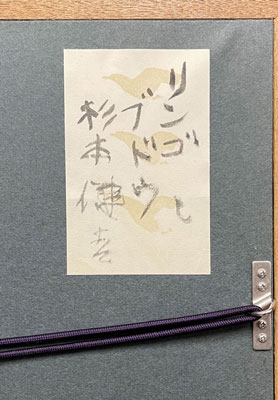 リンゴと
ブドウ
杉本健吉